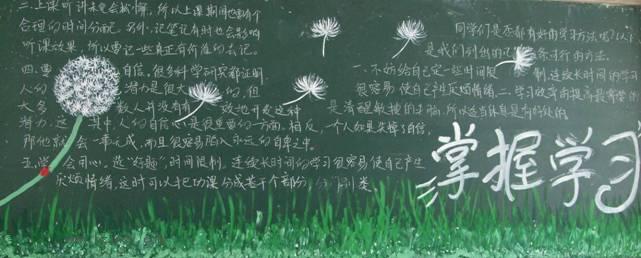 二.上课听讲未必会疲惫,所以上课期间也要有个
合理的时间分配。另外,记笔记有时也会影响
听课效果,所以要记一些真正有价值的去记。
四.要 自信。很多科学研究都证明
人们的 潜力是很大的,但
大多 数人并没有 效地开发这种
潜力,这 其中,人的自信心是很重要的一方面。相反,一个人如果失掉了自信,
那他就会一事无成,而且很容易陷入永远的自卑之中。
五.学会用心。选“好题”,时间限制,连续长时间的学习很容易使自己产生
厌烦情绪,这时可以把功课分成若干个部分,分门别类。
同学们是否都有好的学习方法呢?以下
是我们列出的 条可行的方法。
一.不妨给自己定一些时间限制,连续长时间的学习
很容易使自己产生厌烦情绪。二.学习效率的提高最需要的
是清醒敏捷的头脑,所以适当休息是有好处的
掌握学习